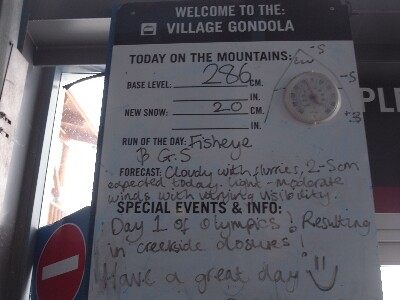 WELCOME TO THE:
VILLAGE GONDOLA
TODAY ON THE MOUNTAINS:
BASE LEVEL: 286 CM.
IN.
NEW SNOW: 2.0 CM.
IN.
RUN OF THE DAY: Fisheye
B G.S
FORECAST: Cloudy with flurries, 2-5cm
expected today. Light - moderate
winds with varying visibility.
SPECIAL EVENTS & INFO:
Day 1 of Olympics! Resulting
in creekside closures!
Have a great day
-5
-5